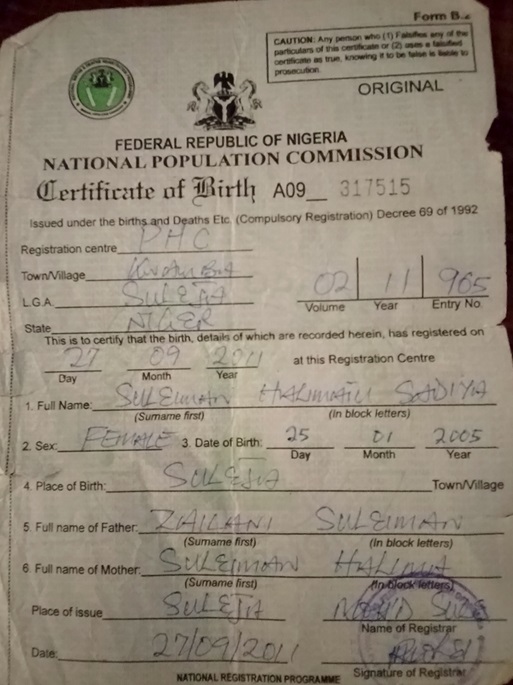 Form B.
CAUTION: Any person who (1) Falsifies any of the
particulars of this certificate or (2) uses a falsified
certificate as true, knowing it to be false is liable to
prosecution.
ORIGINAL
FEDERAL REPUBLIC OF NIGERIA
NATIONAL POPULATION COMMISSION
Certificate of Birth A09__ 317515
Issued under the births and Deaths Etc. (Compulsory Registration) Decree 69 of 1992
Registration centre PHC
Town/Village KWAMBA
L.G.A. SULEJA
02 11 965
Volume Year Entry No.
State NIGER
This is to certify that the birth, details of which are recorded herein, has registered on
27 09 2011 at this Registration Centre
Day Month Year
1. Full Name: SULEIMAN HALIMATU SADIYA
(Surname first) (In block letters)
2. Sex: FEMALE 3. Date of Birth: 25 01 2005
Day Month Year
4. Place of Birth: SULEJA Town/Village
5. Full name of Father: SULEIMAN
(Surname first) (In block letters)
6. Full name of Mother: SULEIMAN HALIMA
(Surname first) (In block letters)
Place of issue SULEJA
Name of Registrar
Date: 27/09/2011
Signature of Registrar
NATIONAL REGISTRATION PROGRAMME